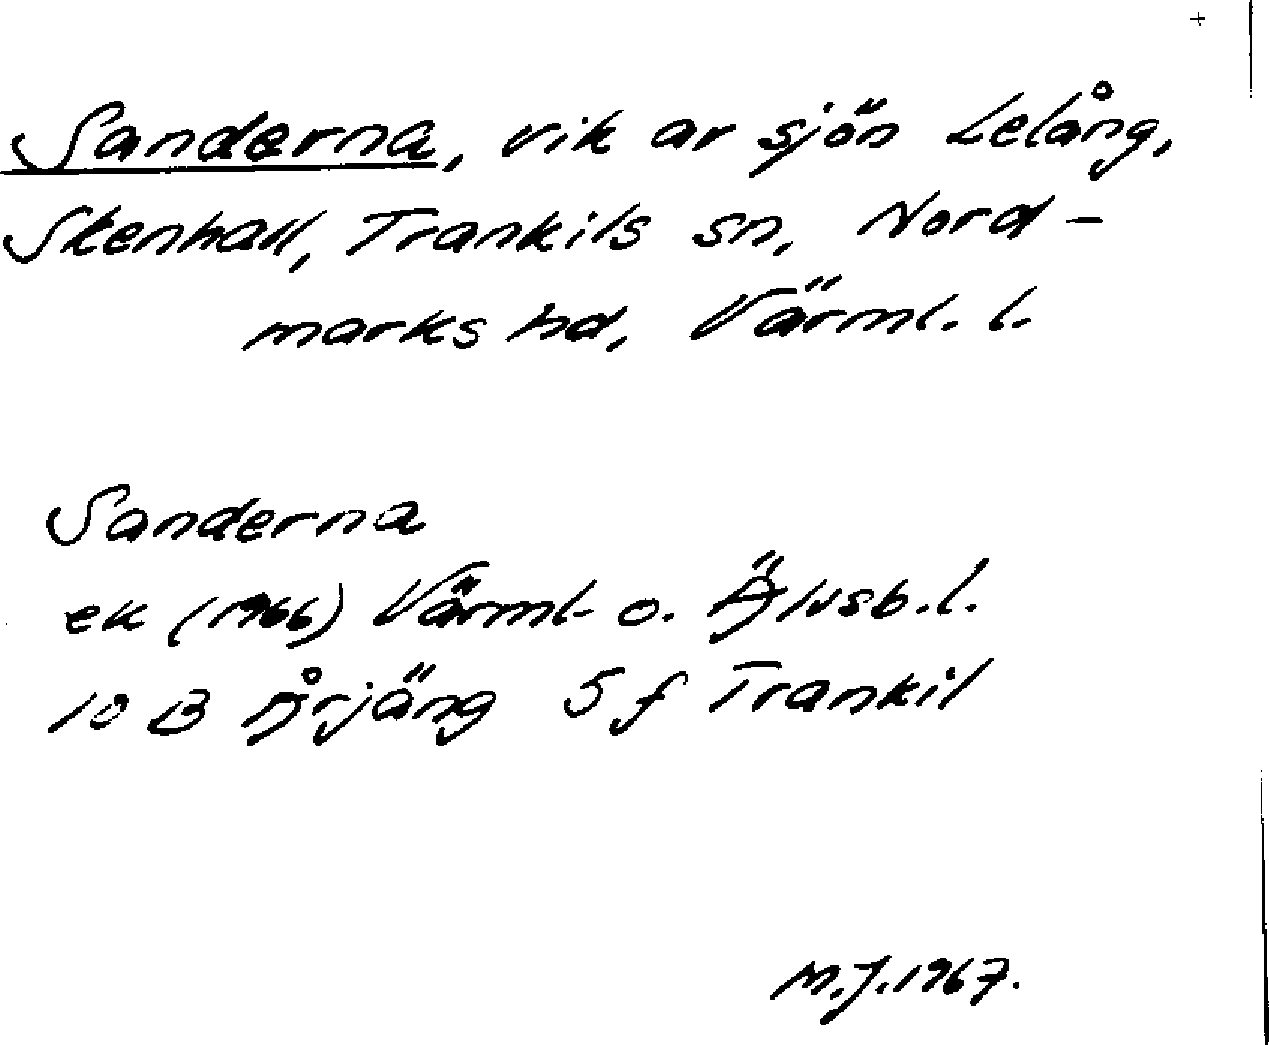 Sanderna, vik av sjön Lelång,
Stenhall, Trankils sn, Nord-
marks hd, Värml. l.
Sanderna
ek (1966) Värml- o. Älvsb. l.
10 B Årjäng 5 f Trankil
M.J. 1967.